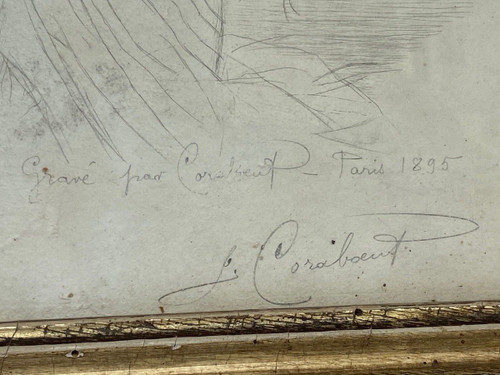 Gravé par Coraboeuf - Paris 1895
J. Coraboeuf